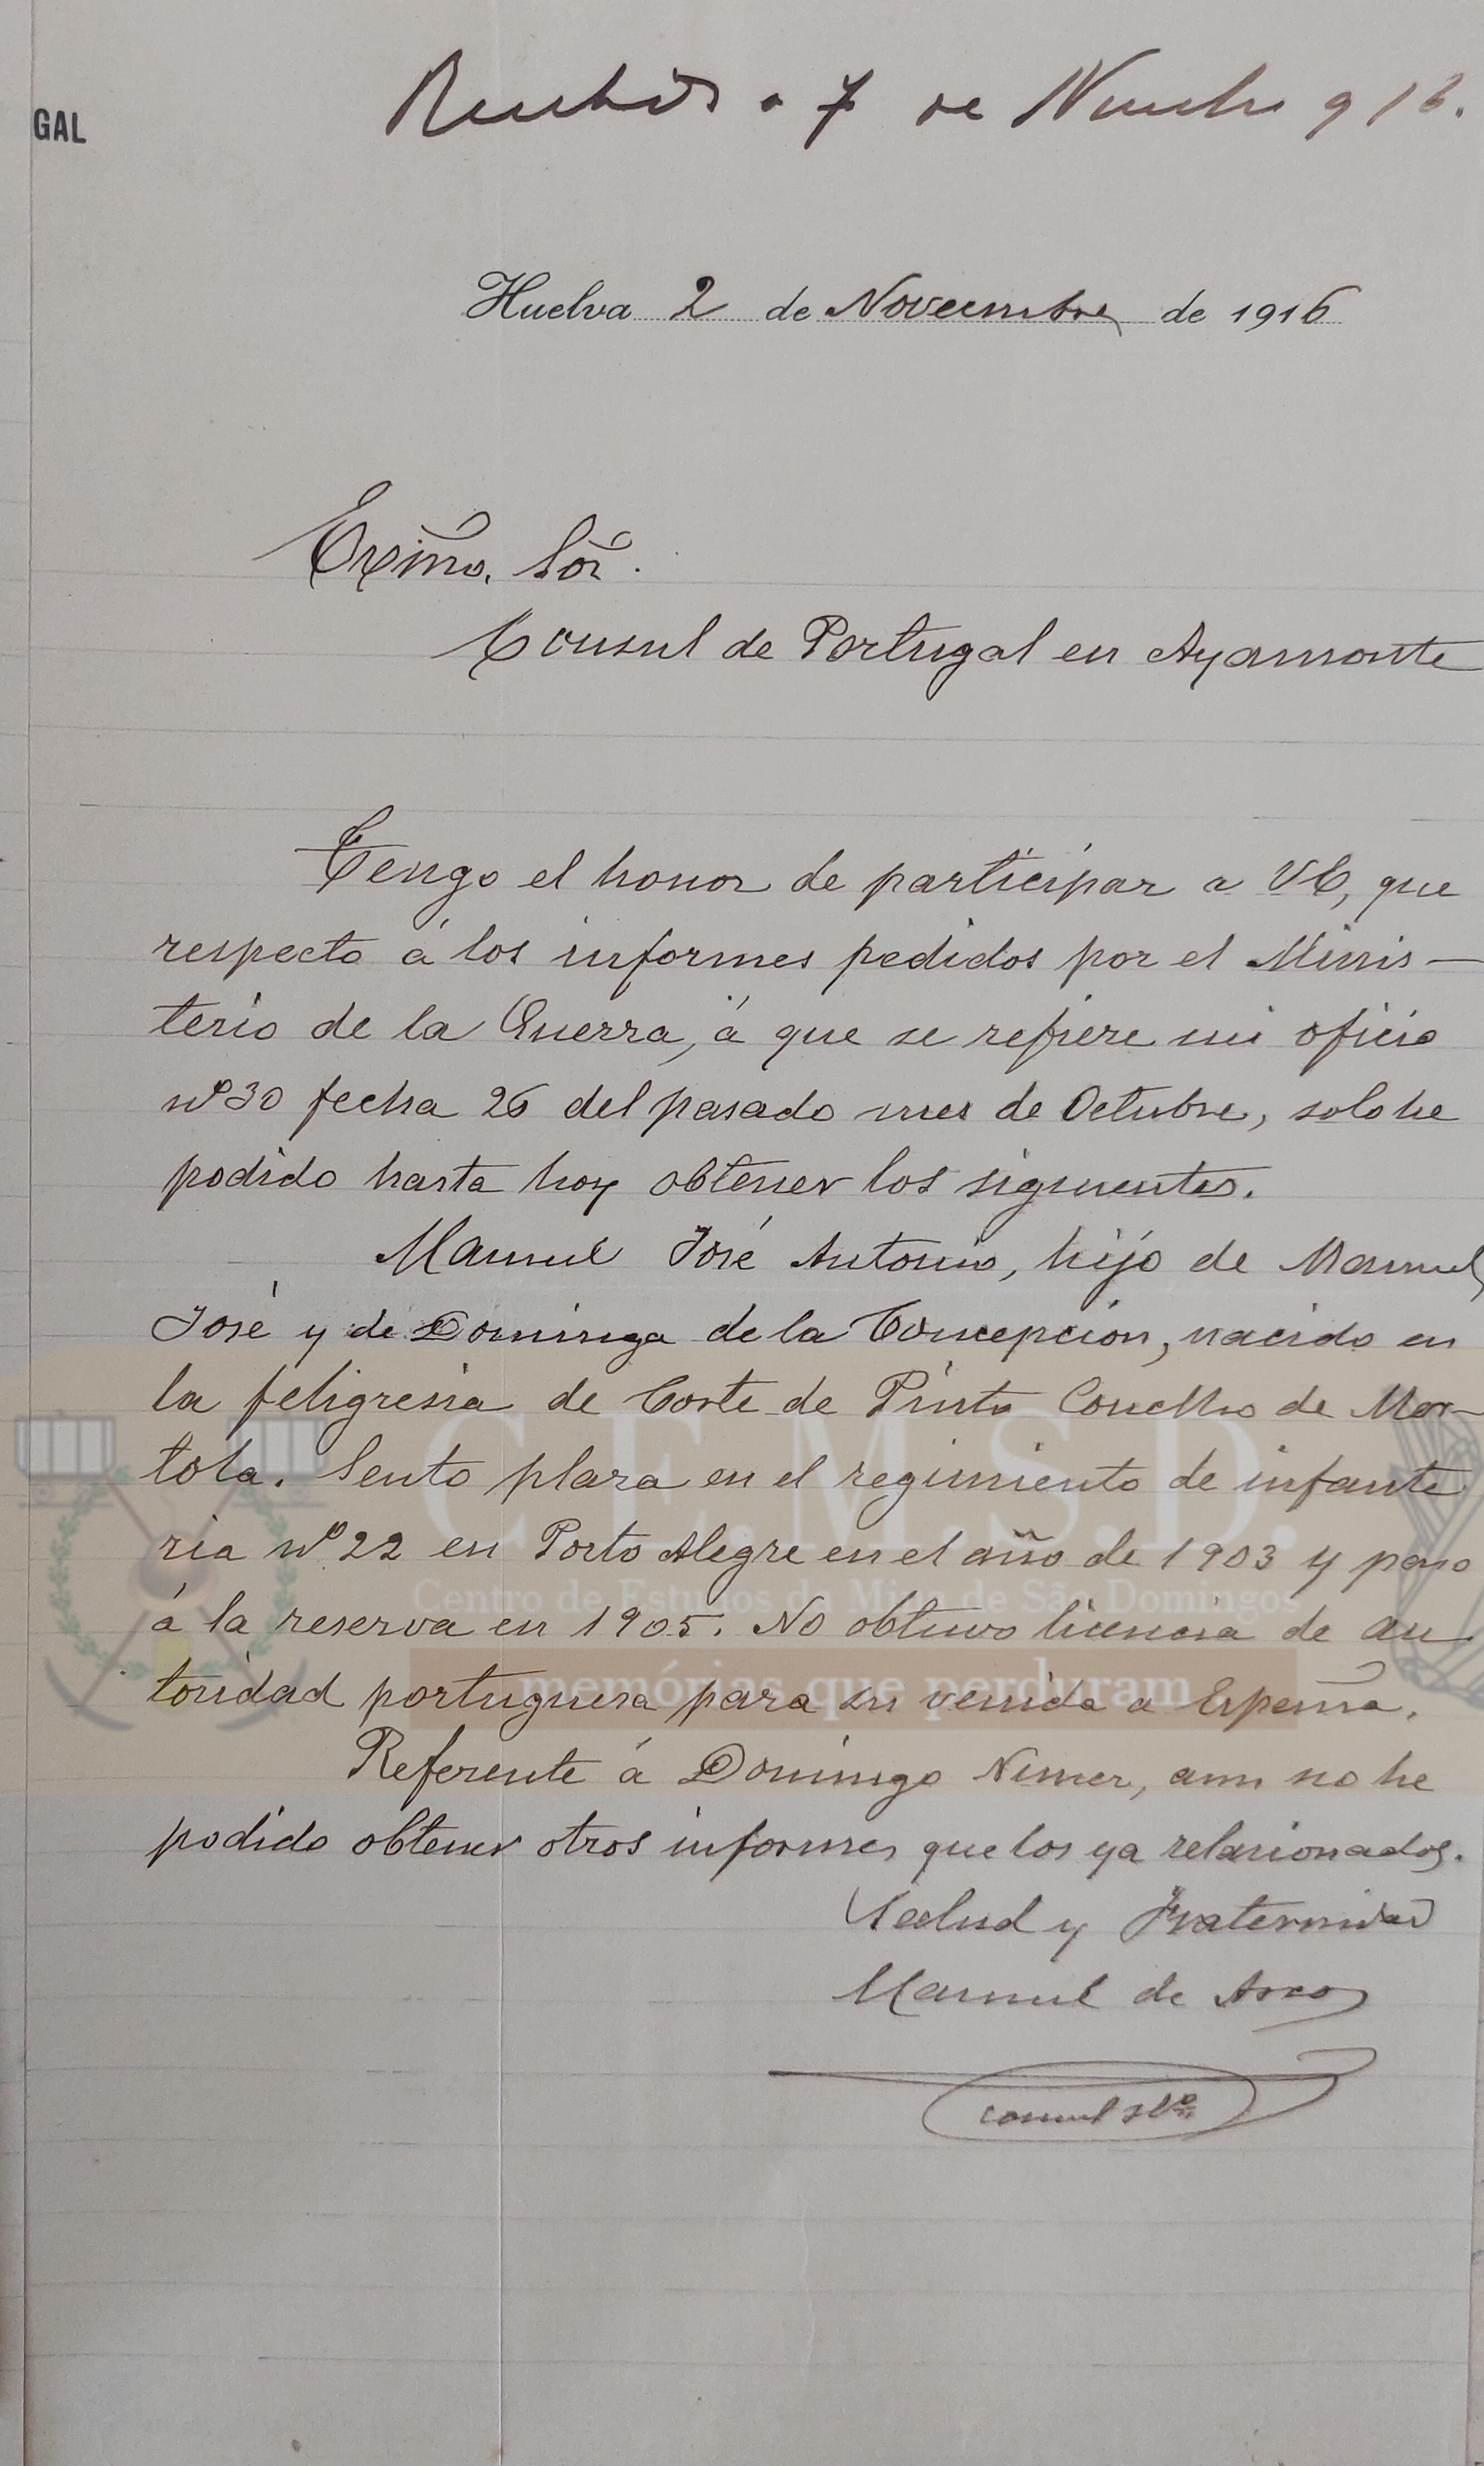 GAL
a 7 de 916.
Huelva 2 de Novembre de 1916
Exmo. Sõr.
Consul de Portugal en Ayamonte
Tengo el honor de participar a VE, que
respecto á los informes pedidos por el Minis-
terio de la Guerra, á que se refiere mi oficio
nº 30 fecha 26 del pasado mes de Octubre, solo he
podido hasta hoy obtener los siguentes.
Manuel José Antonio, hijo de Manuel
José y de Dominga de la Concepcion, nacido en
la feligresia de Corte de Pinto Concelho de Mer-
tola. Sento plaza en el regimiento de infante
ria nº 22 en Porto Alegre en el año de 1903 y paso
á la reserva en 1905. No obtuvo licencia de au
toridad portuguesa para su venida a España.
Referente á Domingo Nimer, aun no he
podido obtener otros informes que los ya relacionados.
Salud y Fraternidad
Manuel de
consul
C.E.M.S.D.
Centro de Estudos da Mina de São Domingos
memórias que perduram